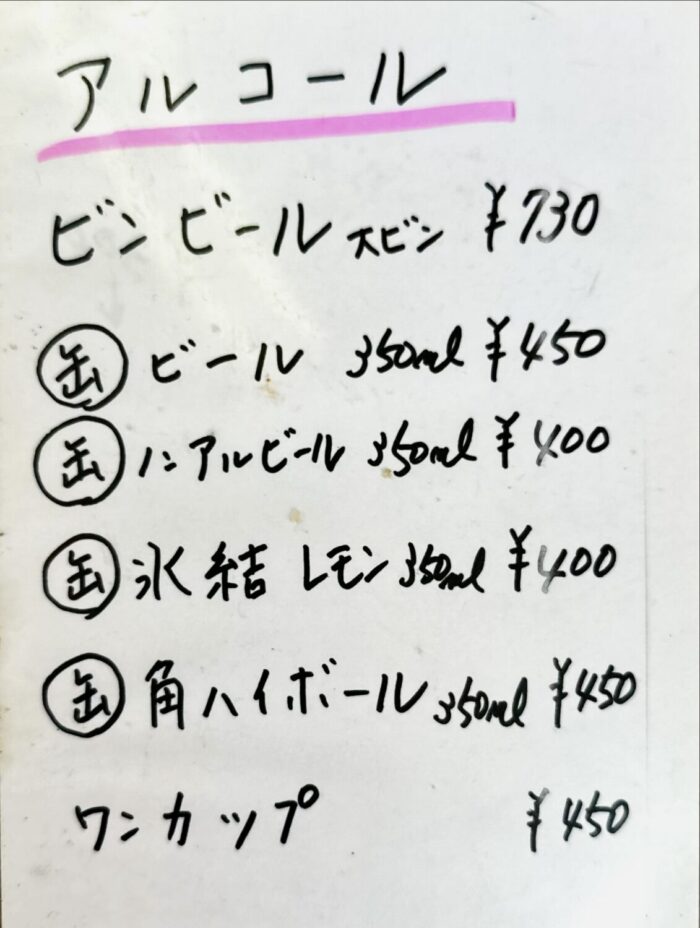 アルコール
ビンビール 大ビン ¥730
缶 ビール 350ml ¥450
缶 ノンアルビール 350ml ¥400
缶 氷結 レモン 350ml ¥400
缶 角ハイボール 350ml ¥450
ワンカップ ¥450